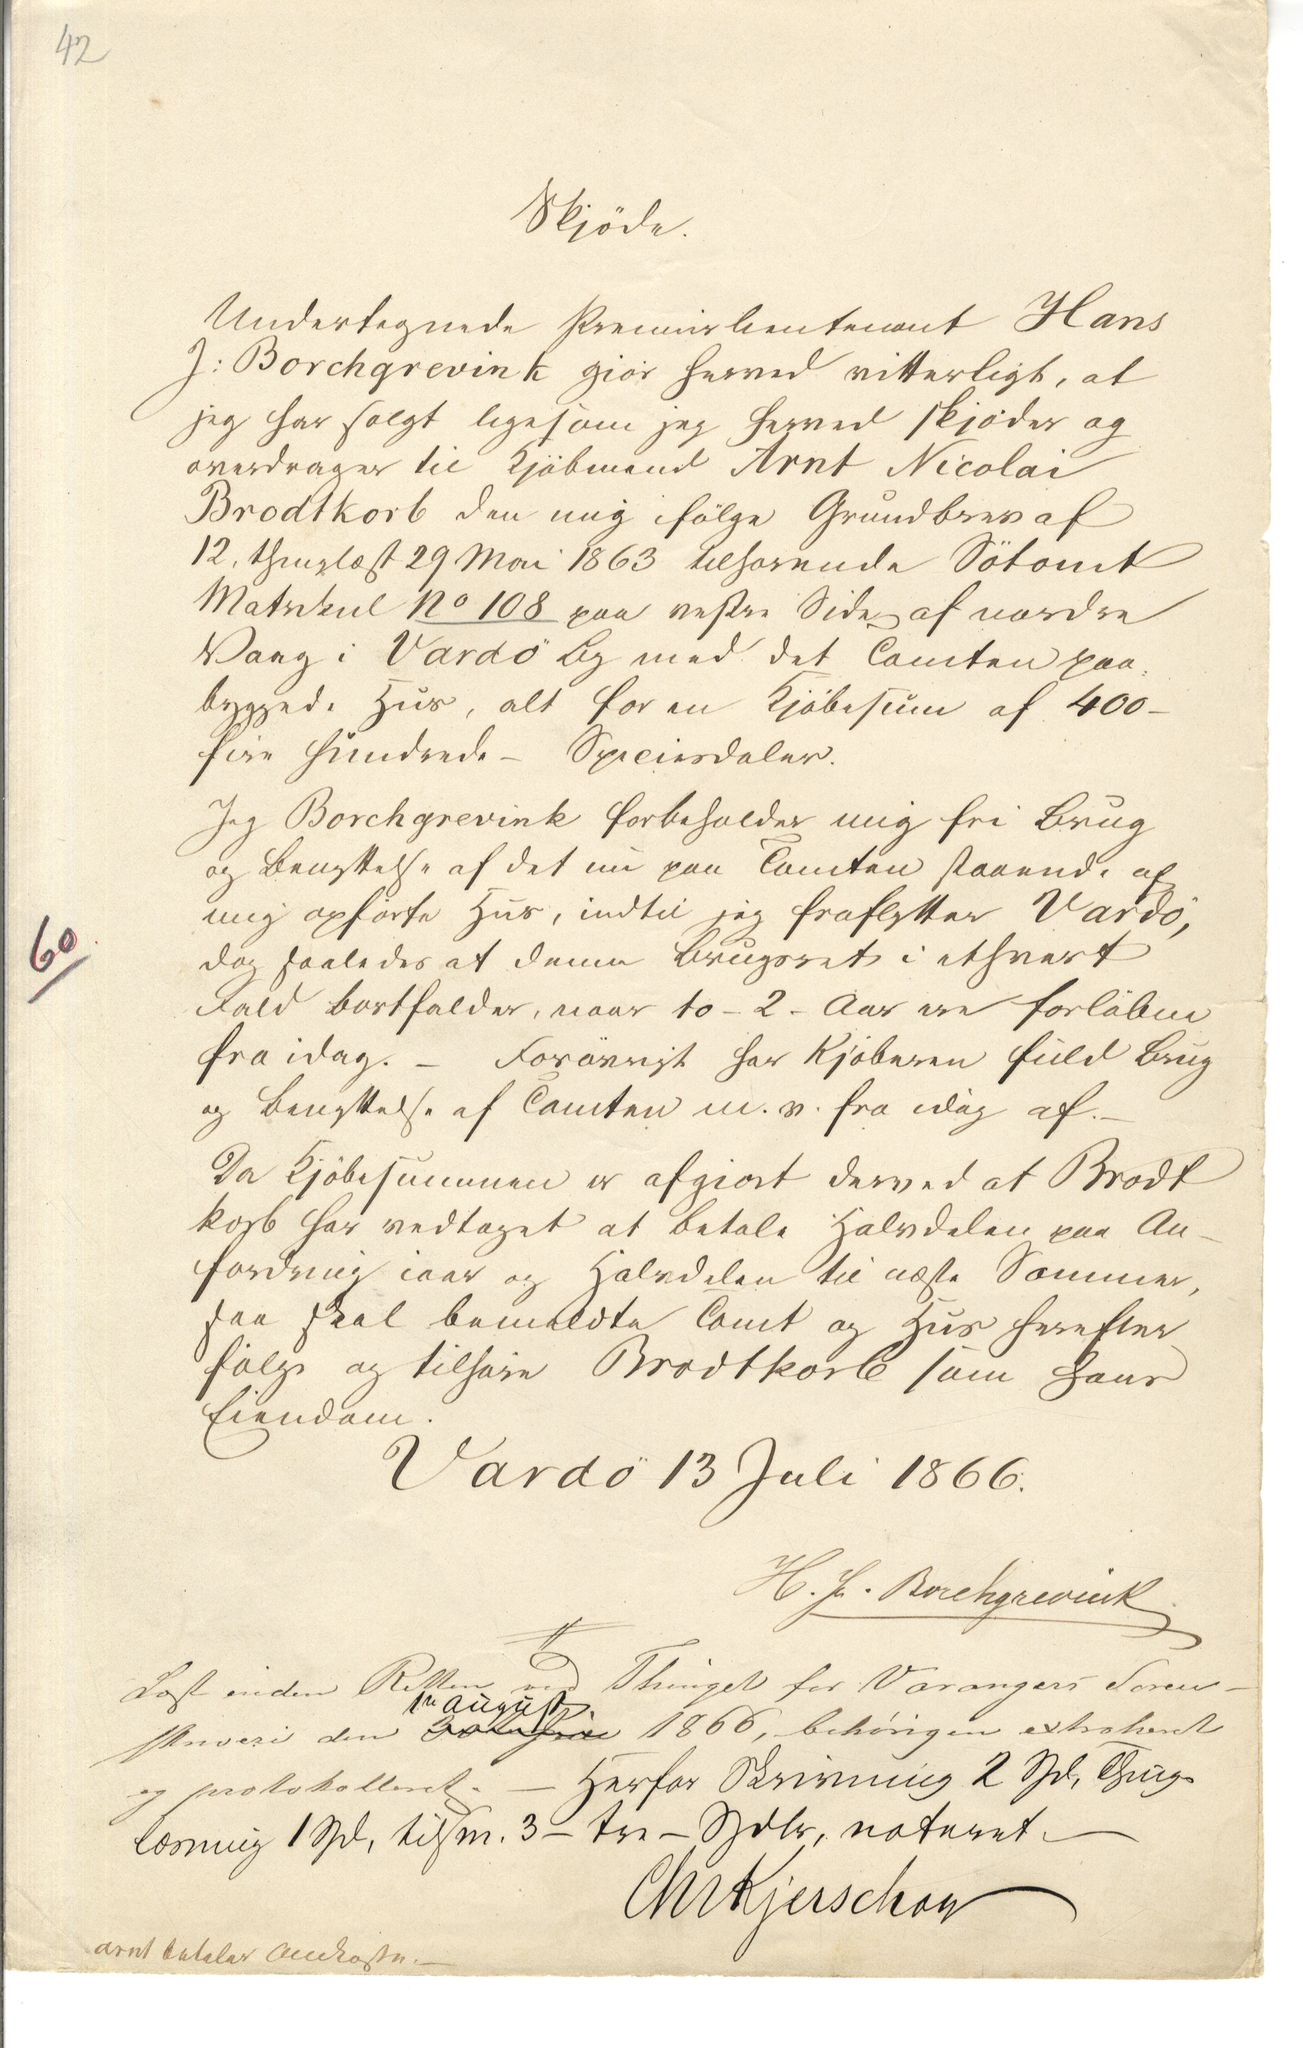 42
Skjöde.
Undertegnede Premierlieutenant Hans
J: Borchgrevink gjör herved vitterligt, at
jeg har solgt ligesom jeg herved skjöder og
overdrager til Kjöbmand Arnt Nicolai
Brodtkorb den mig ifölge Grundbrev af
12, thinglæst 29 Mai 1863 tilhörende Sötomt
Matrikul No 108 paa vestre Side af nordre
Vaag i Vardö By med det Tomten paa-
byggede Hus, alt for en Kjöbesum af 400 -
fire hundrede - Speciesdaler.
Jeg Borchgrevink forbeholder mig fri Brug
og Benyttelse af det nu paa Tomten staaende af
mig opförte Hus, indtil jeg fraflytter Vardö,
dog saaledes at denne Brugsret i ethvert
Fald bortfalder, naar to - 2 - Aar ere forlöbne
fra idag. - Forövrigt har Kjöberen fuld Brug
og Benyttelse af Tomten m. v. fra idag af. -
Da Kjöbesummen er afgjort derved at Brodt
korb har vedtaget at betale Halvdelen paa An-
fordring iaar og Halvdelen til næste Sommer,
saa skal bemeldte Tomt og Hus herefter
fölge og tilhöre Brodtkorb som hans
Eiendom.
Vardö 13 Juli 1866.
60
H. J. Borchgrevink
Læst inden Retten ved Thinget for Varangers Soren-
skriveri den 1ste august 1866, behörigen extraheret
og protokolleret. - Herfor Skrivning 2 Spd, Thing-
læsning 1 Spd, tilsm. 3 - tre - Spdlr, noteret. -
Ch Kjerschow
Arnt betaler Omkostn. -